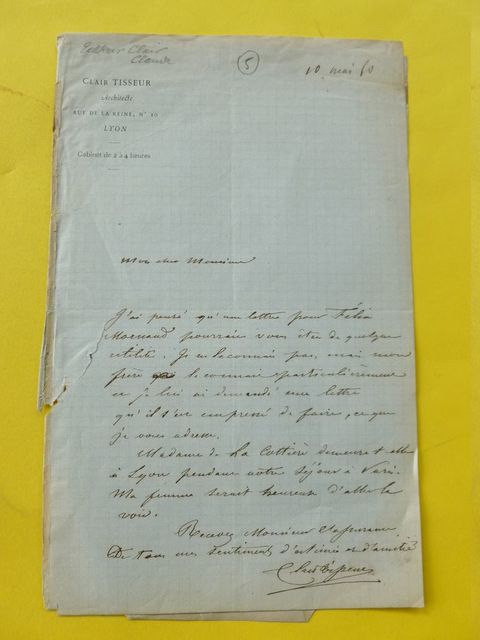 Tisseur Clair
Claude
5
10 mai 60
CLAIR TISSEUR
Architecte
RUE DE LA REINE, Nº 10
LYON
Cabinet de 2 à 4 heures
Mon cher Monsieur
J'ai pensé qu'une lettre pour Félix
Mornand pourrait vous être de quelque
utilité. Je ne le connais pas, mais mon
frère le connait particulièrement
et je lui ai demandé une lettre
qu'il s'est empressé de faire, et que
je vous adresse.
Madame de La Cottière demeure t elle
à Lyon pendant votre séjour à Paris.
Ma femme serait heureuse d'aller la
voir.
Recevez Monsieur l'assurance
De tous mes sentiments d'estime et d'amitié
Clair Tisseur